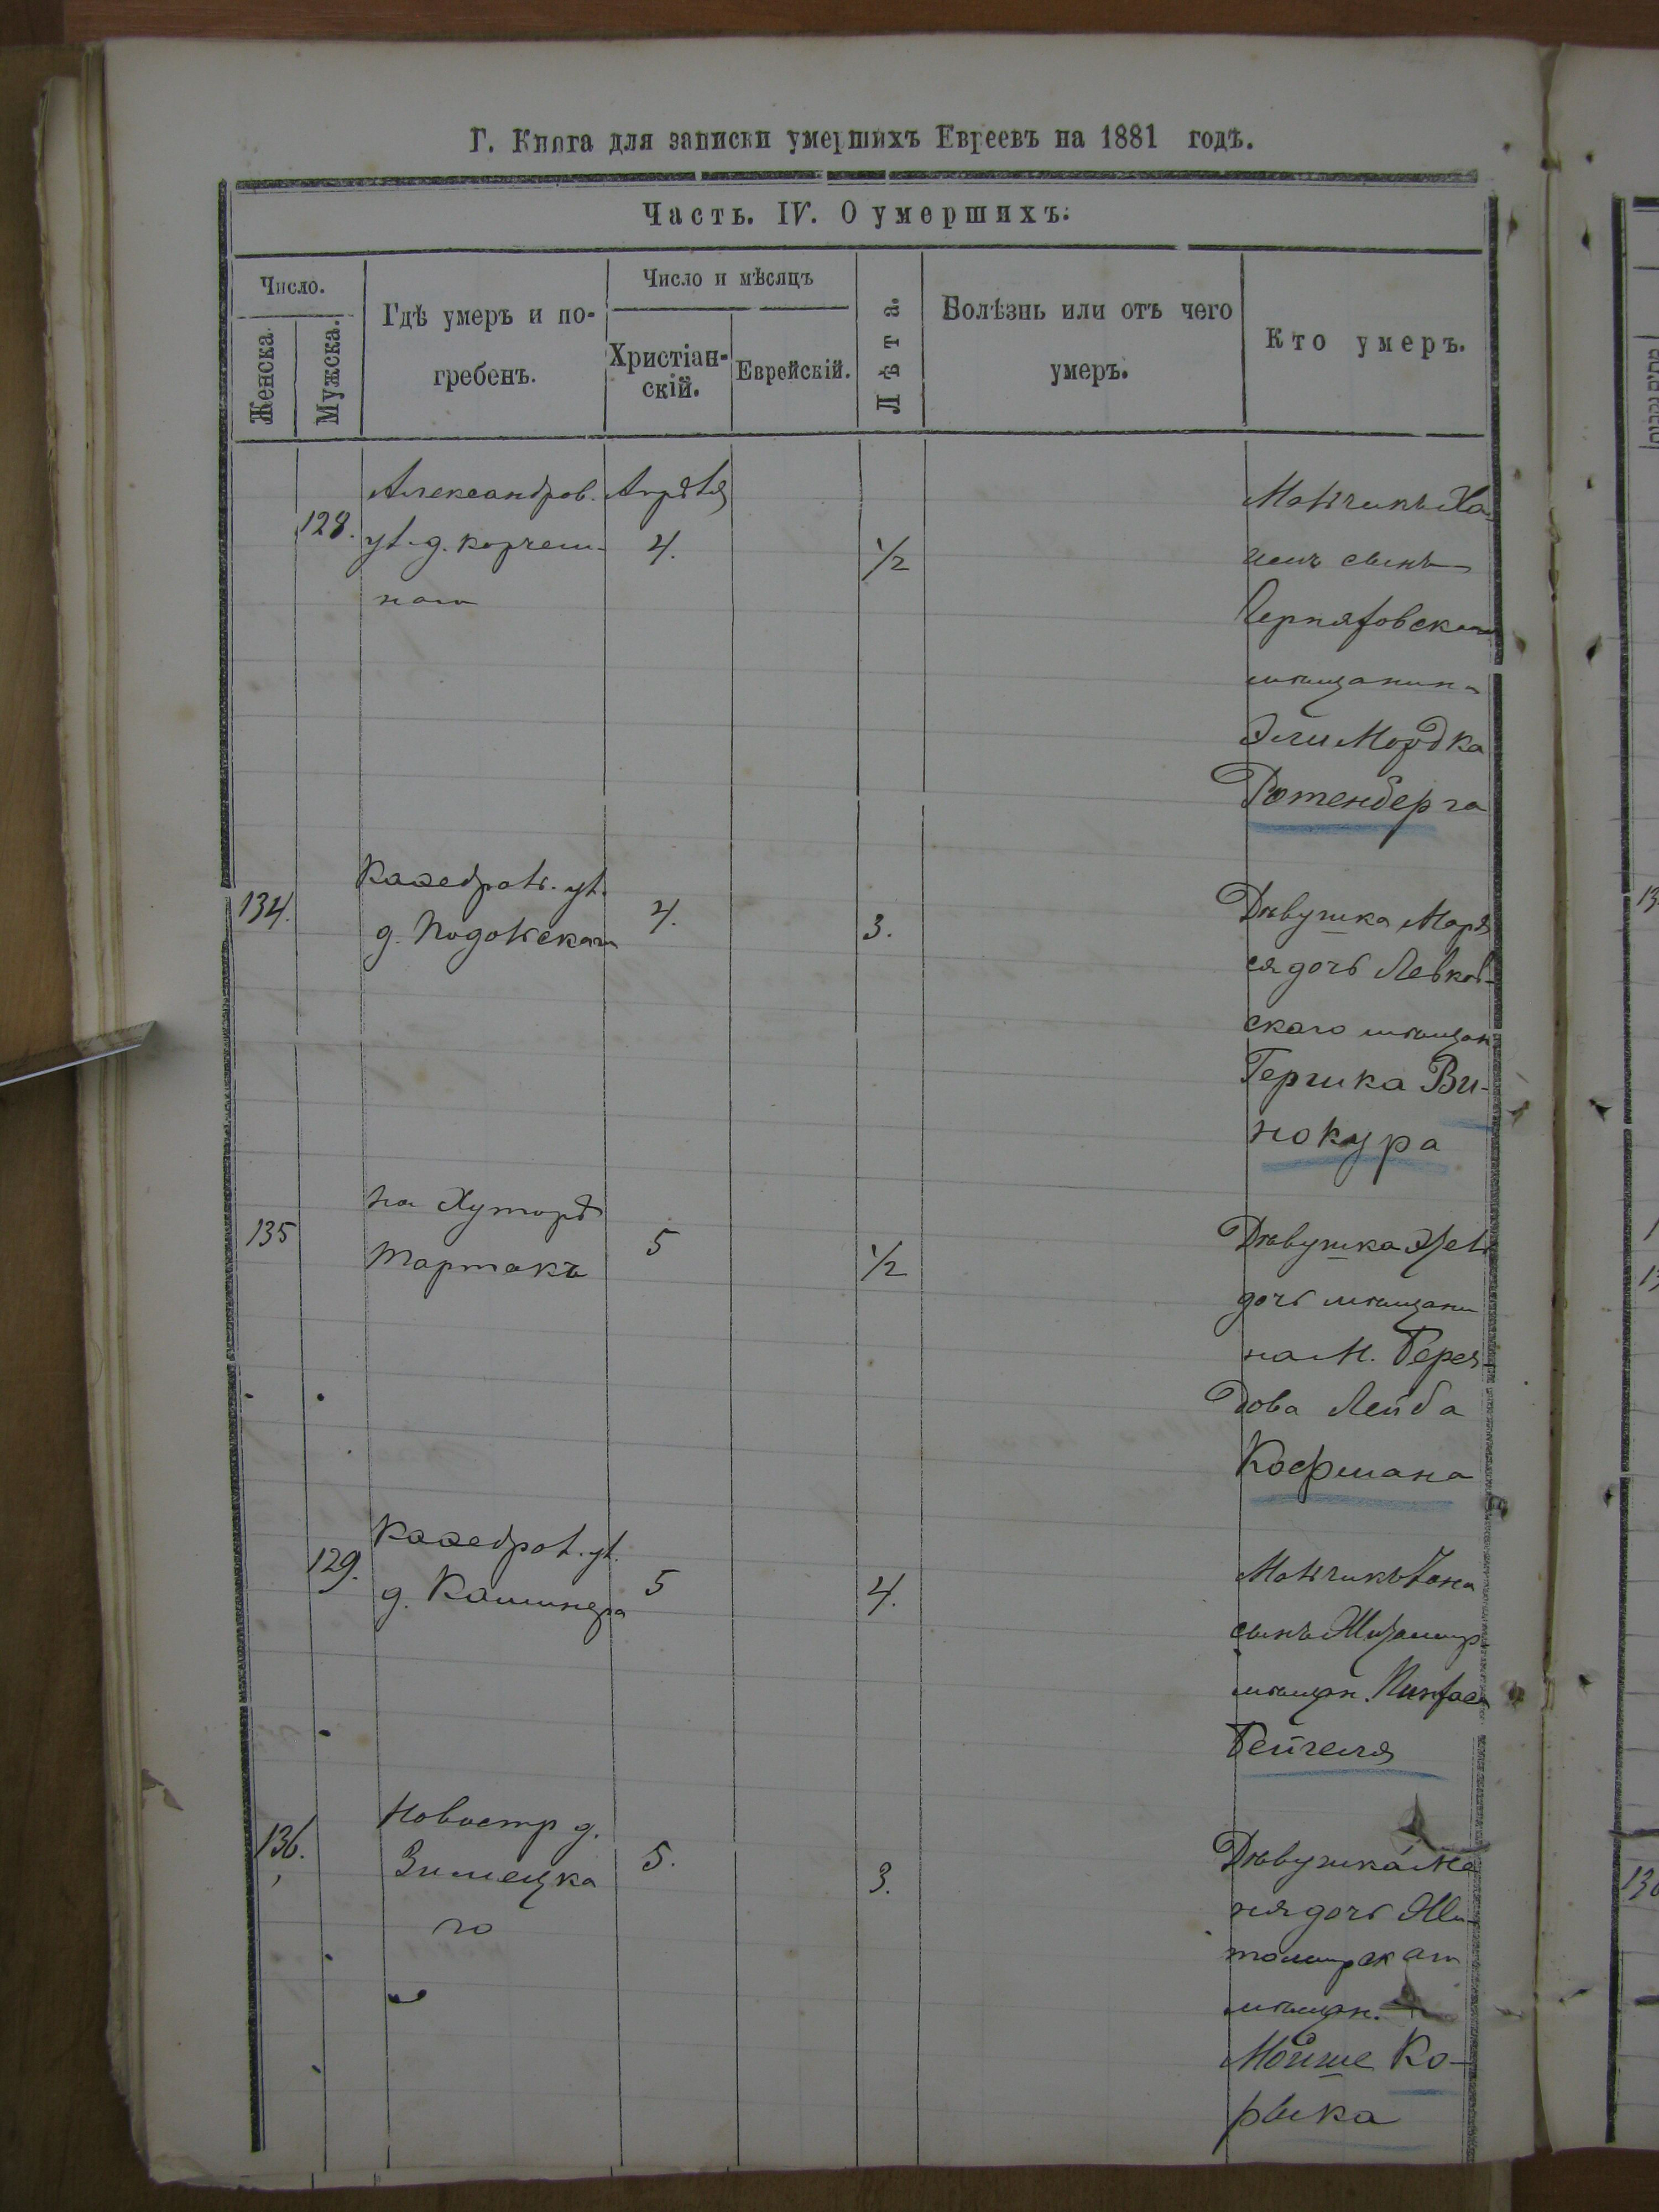 Г. Книга для записки умершихъ Евреевъ на 1881 годъ.
Часть. IV. О умершихъ.
Число.
Женска.
Мужска.
Гдѣ умеръ и по-
гребенъ.
Число и мѣсяцъ
Христіан-
скій.
Еврейскій.
Лѣта.
Болѣзнь или отъ чего
умеръ.
Кто умеръ.
128.
Александров.
ул. д. Корчем-
наго
Апрѣля
4.
1/2
Мальчикъ Ха-
имъ сынъ
Черняховскаго
мѣщанина
Эли Мордка
Ротенберга
134.
Каѳедраль. ул.
д. Подольскаго
4.
3.
Дѣвушка
ся дочь Левков-
скаго мѣщан
Гершка Ви-
нокура
135
на Хуторѣ
Тартакъ
5
1/2
Дѣвушка
дочь мѣщани
на М. Берез-
дова Лейба
Кофмана
129.
Каѳедрал. ул.
д.
5
4.
Мальчикъ
сынъ Житомир
мѣщан. Пинхаса
Бейгеля
136.
Новостр д.
Зимецка
го
5.
3.
Дѣвушка Ма
ня дочь Жи-
томирскаго
мѣщан.
Мойше Ко-
рыка